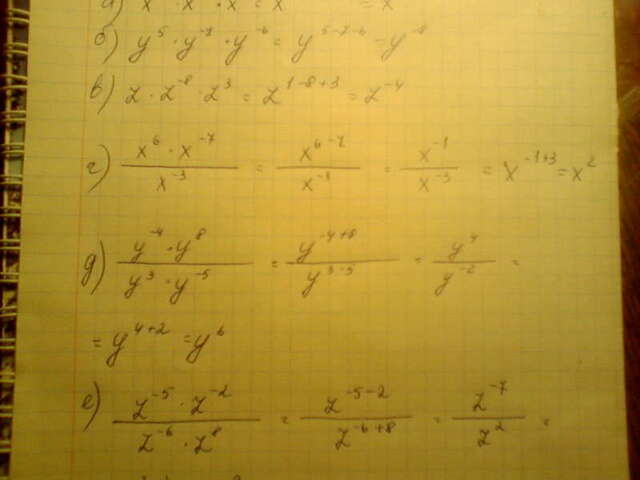 а) x · x · x = x = x
б) y⁵ · y⁻⁷ · y⁻⁶ = y⁵⁻⁷⁻⁶ = y⁻⁸
в) z · z⁻⁸ · z³ = z¹⁻⁸⁺³ = z⁻⁴
г) (x⁶ · x⁻⁷)/(x⁻³) = (x⁶⁻⁷)/(x⁻³) = (x⁻¹)/(x⁻³) = x⁻¹⁺³ = x²
д) (y⁻⁴ · y⁸)/(y³ · y⁻⁵) = (y⁻⁴⁺⁸)/(y³⁻⁵) = (y⁴)/(y⁻²) =
= y⁴⁺² = y⁶
е) (z⁻⁵ · z⁻²)/(z⁻⁶ · z⁸) = (z⁻⁵⁻²)/(z⁻⁶⁺⁸) = (z⁻⁷)/(z²) =